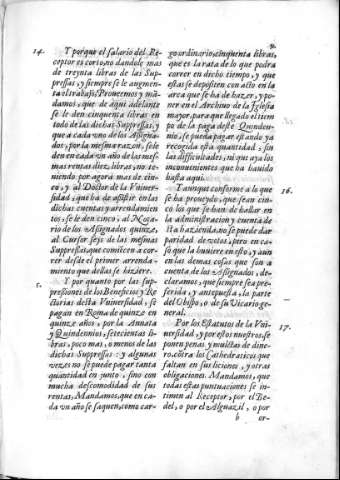 14.
Y porque el salario del Re-
ceptor es corto, no dandole mas
de treynta libras de las Sup-
pressas, y siempre se le augmen-
ta el trabajo, Proueemos y mã-
damos, que de aqui adelante
se le den cinquenta libras en
todo de las dichas Suppressas, y
que a cada vno de los Assigna-
dos, por la mesma razon, se le
den en cada vn año de las mes-
mas rentas diez libras, no te-
niendo por agora mas de cin-
co, y al Doctor de la Vniuer-
sidad, que ha de assistir en las
dichas cuentas y arrendamien-
tos, se le den cinco, al Nota-
rio de los Assignados quinze,
al Cursor seys de las mesmas
Suppressas, que comiecen a cor-
rer desde el primer arrenda-
miento que dellas se hiziere.
Y por quanto por las sup-
pressiones de los Beneficos y Re-
ctorias desta Vniuersidad, se
pagan en Roma de quinze en
quinze años, por la Annata
y Quindennios, setecientas li-
bras, poco mas, o menos de las
dichas Suppressas: y algunas
vezes no se puede pagar tanta
quantidad en junto, sino con
mucha descomodidad de sus
rentas, Mandamos, que en ca-
da vn año se saquen, como car-
go ordinario, cinquenta libras,
que es la rata de lo que podra
correr en dicho tiempo, y que
estas se depositen con acto en la
arca que se ha de hazer, y po-
ner en el Archiuo de la Iglesia
mayor, para que llegado el tiem-
po de la paga deste Quinden-
nio, se pueda pagar estando ya
recogida esta quantidad, sin
las difficultades, ni que aya los
inconuenientes que ha hauido
hasta aqui.
16.
Y aunque conforme a lo que
se ha proueydo, que sean cin-
co los que se han de hallar en
la administracion y cuenta de
sta hazienda, no se puede dar
paridad de votos, pero en ca-
so que la huuiere en esto, y aun
en las demas cosas que son a
cuenta de los Assignados, de-
claramos, que siempre sea pre-
ferida, y antepuesta, la parte
del Obispo, o de su Vicario ge-
neral.
17.
Por los Estatutos de la Vni-
uersidad, y por estos nuestros, se
ponen penas y mulctas de dine-
ro, cõtra los Cathedraticos que
faltan en sus liciones, y otras
obligaciones. Mandamos, que
todas estas puntuaciones se in-
timen al Receptor, por el Be-
del, o por el Alguazil, o por
b
or-